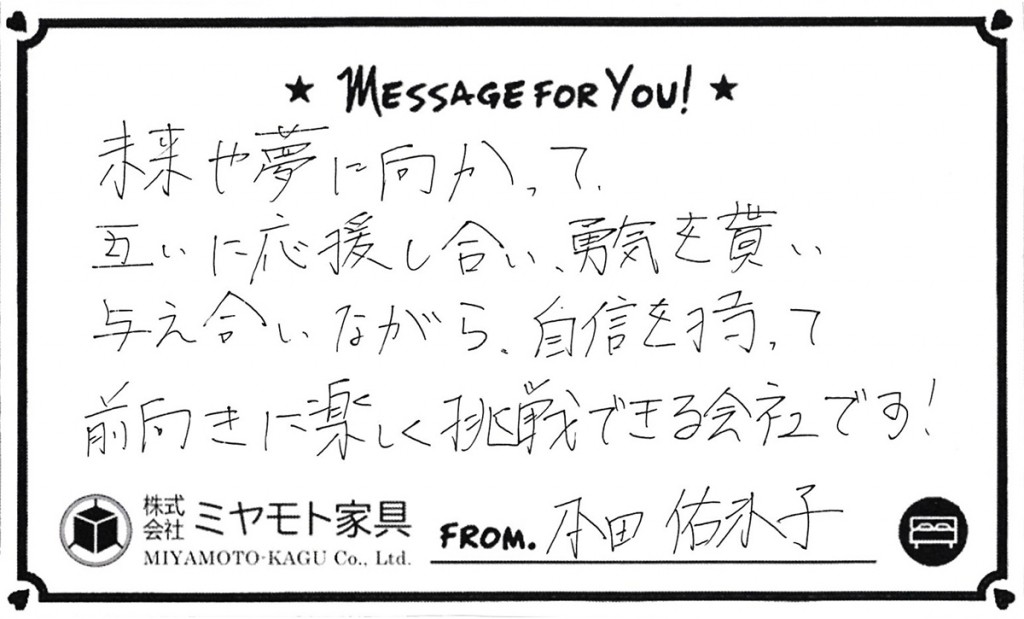 ★ MESSAGE FOR YOU! ★
未来や夢に向かって、
互いに応援し合い、勇気を貰い
与え合いながら、自信を持って
前向きに楽しく挑戦できる会社です!
株式会社 ミヤモト家具
MIYAMOTO-KAGU Co., Ltd.
FROM. 本田 佑氷子